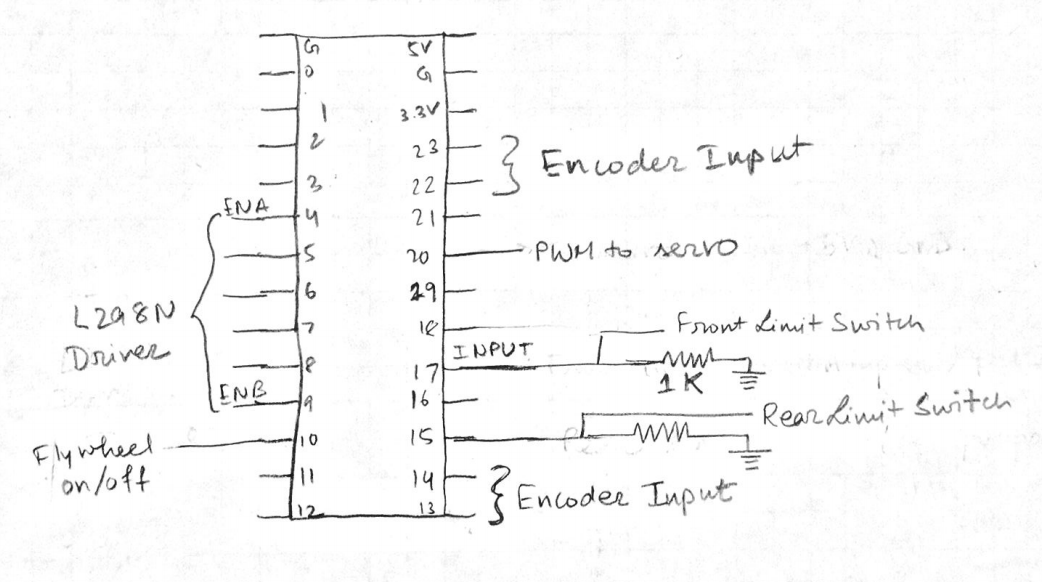 G 5V
0 G
1 3.3V
2 23
Encoder Input
3 22
ENA
4 21
5 20 PWM to servo
6 29
L298N
Driver
7 18
Front Limit Switch
INPUT
8 17
1K
ENB
9 16
Rear Limit Switch
Flywheel
on/off
10 15
11 14
Encoder Input
12 13